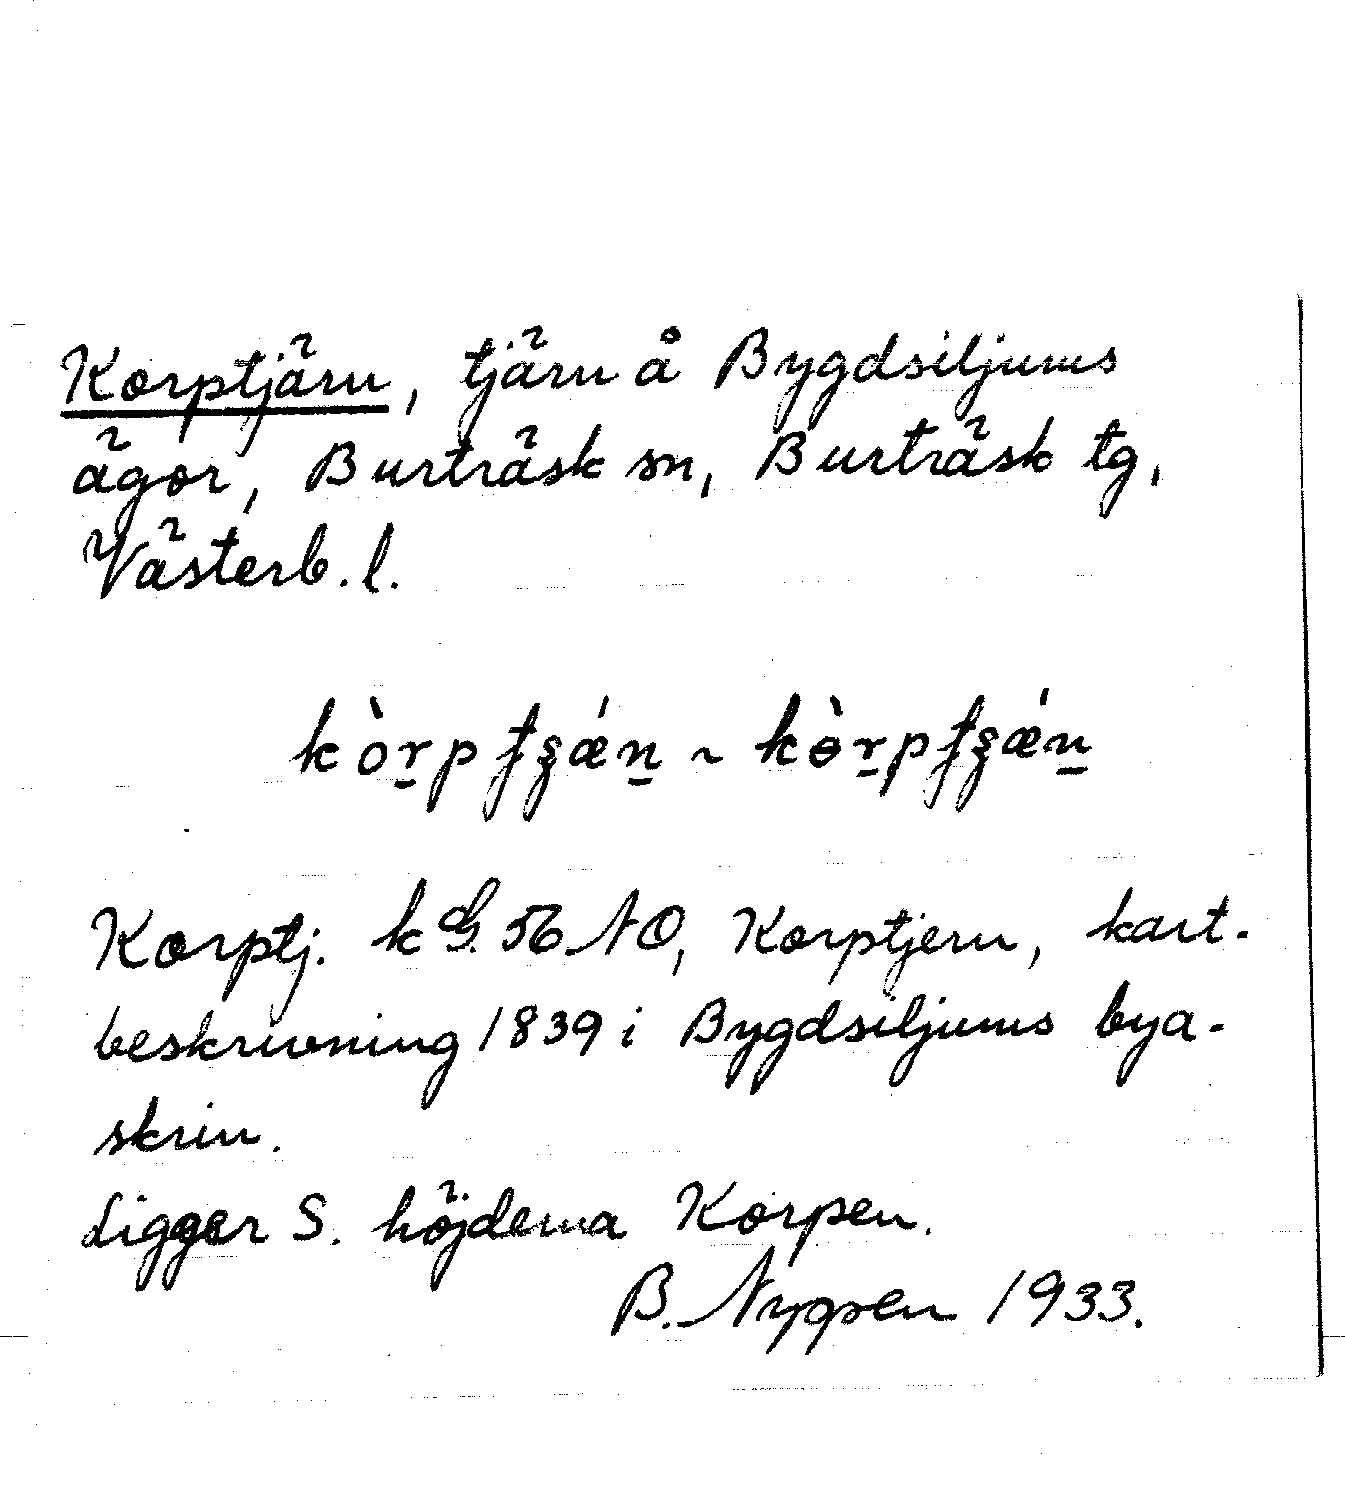 Korptjärn, tjärn å Bygdsiljums
ägor, Burträsk sn, Burträsk tg,
Västerb. l.
Korptj. k G. 56 NO, Korptjern, kart-
beskrivning 1839 i Bygdsiljums bya-
skrin.
Ligger S. höjderna Korpen.
B. 1933.